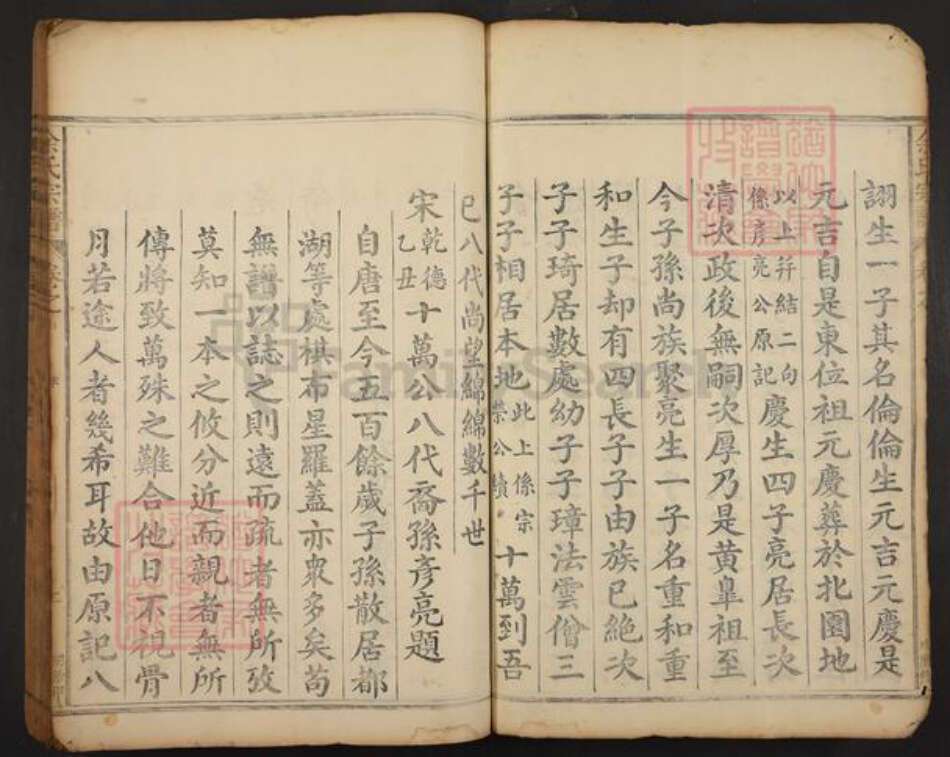 詡生一子其名倫倫生元吉元慶是
元吉自是東位祖元慶葬於北園地
以上幷結二向係彥亮公原記慶生四子亮居長次
清次政後無嗣次厚乃是黃臯祖至
今子孫尚族聚亮生一子名重和重
和生子却有四長子子由族已絶次
子子琦居數處幼子子璋法雲僧三
子子相居本地此上係宗榮公續十萬到吾
已八代尚望綿綿數千世
宋乾德乙丑十萬公八代裔孫彥亮題
自唐至今五百餘歲子孫散居都
湖等處棋布星羅蓋亦衆多矣苟
無譜以誌之則遠而疏者無所攷
莫知一本之攸分近而親者無所
傳將致萬殊之難合他日不視骨
月若途人者幾希耳故由原記八
余氏宗譜
FamilySearch